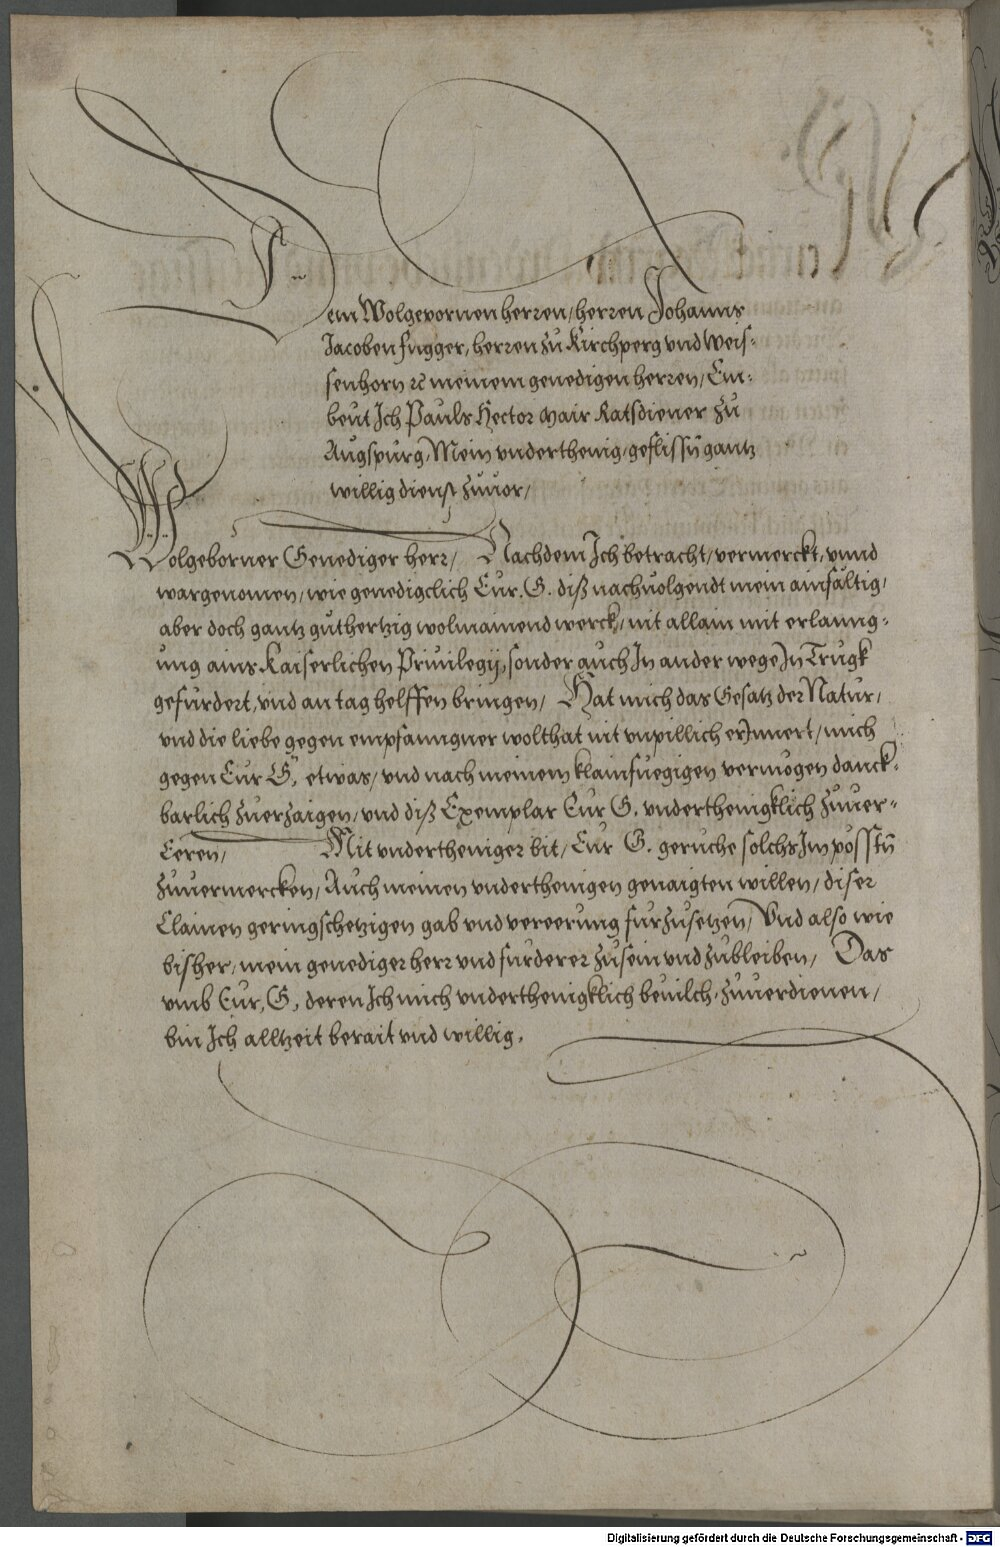 Dem Wolgepornen herren/ herren Johanns
Jacoben fugger, herren zu Kirchperg vnd Weis-
senhorn ꝛc meinem genedigen herren/ Em-
beut Ich Pauls Hector Mair Ratsdiener zu
Augspurg, Mein vnderthenig, geflissn̄ gantz
willig dienst zuuor/
Wolgeborner Genediger herr/ Nachdem Ich betracht/ vermerckt, vnnd
wargenomen/ wie genedigclich Eur. G. diß nachuolgendt mein ainfältig,
aber doch gantz guthertzig wolmainend werck/ nit allain mit erlanng-
ung ains Kaiserlichen Priuilegij, sonder auch In ander wege In Trugk
gefürdert, vnd an tag helffen bringen/ Hat mich das Gesatz der Natur,
vnd die liebe gegen empfanngner wolthat nit vnpillich erInnert/ mich
gegen Eur G, etwas/ vnd nach meinem klainfuegigen vermogen danck-
barlich zuerzaigen/ vnd diß Exemplar Eur G. vnderthenigklich zuuer-
Eeren/ Mit vndertheniger bit/ Eur G. geruche solchs Im pösstn̄
zuuermercken/ Auch meinen vnderthenigen genaigten willen/ diser
Clainen geringschetzigen gab vnd vereerung furzusetzen/ Vnd also wie
bisher, mein genediger herr vnd furderer zusein vnd zubleiben/ Das
vmb Eur, G, deren Ich mich vnderthenigklich beuilch, zuuerdienen/
bin Ich alltzeit berait vnd willig.
Digitalisierung gefördert durch die Deutsche Forschungsgemeinschaft - DFG